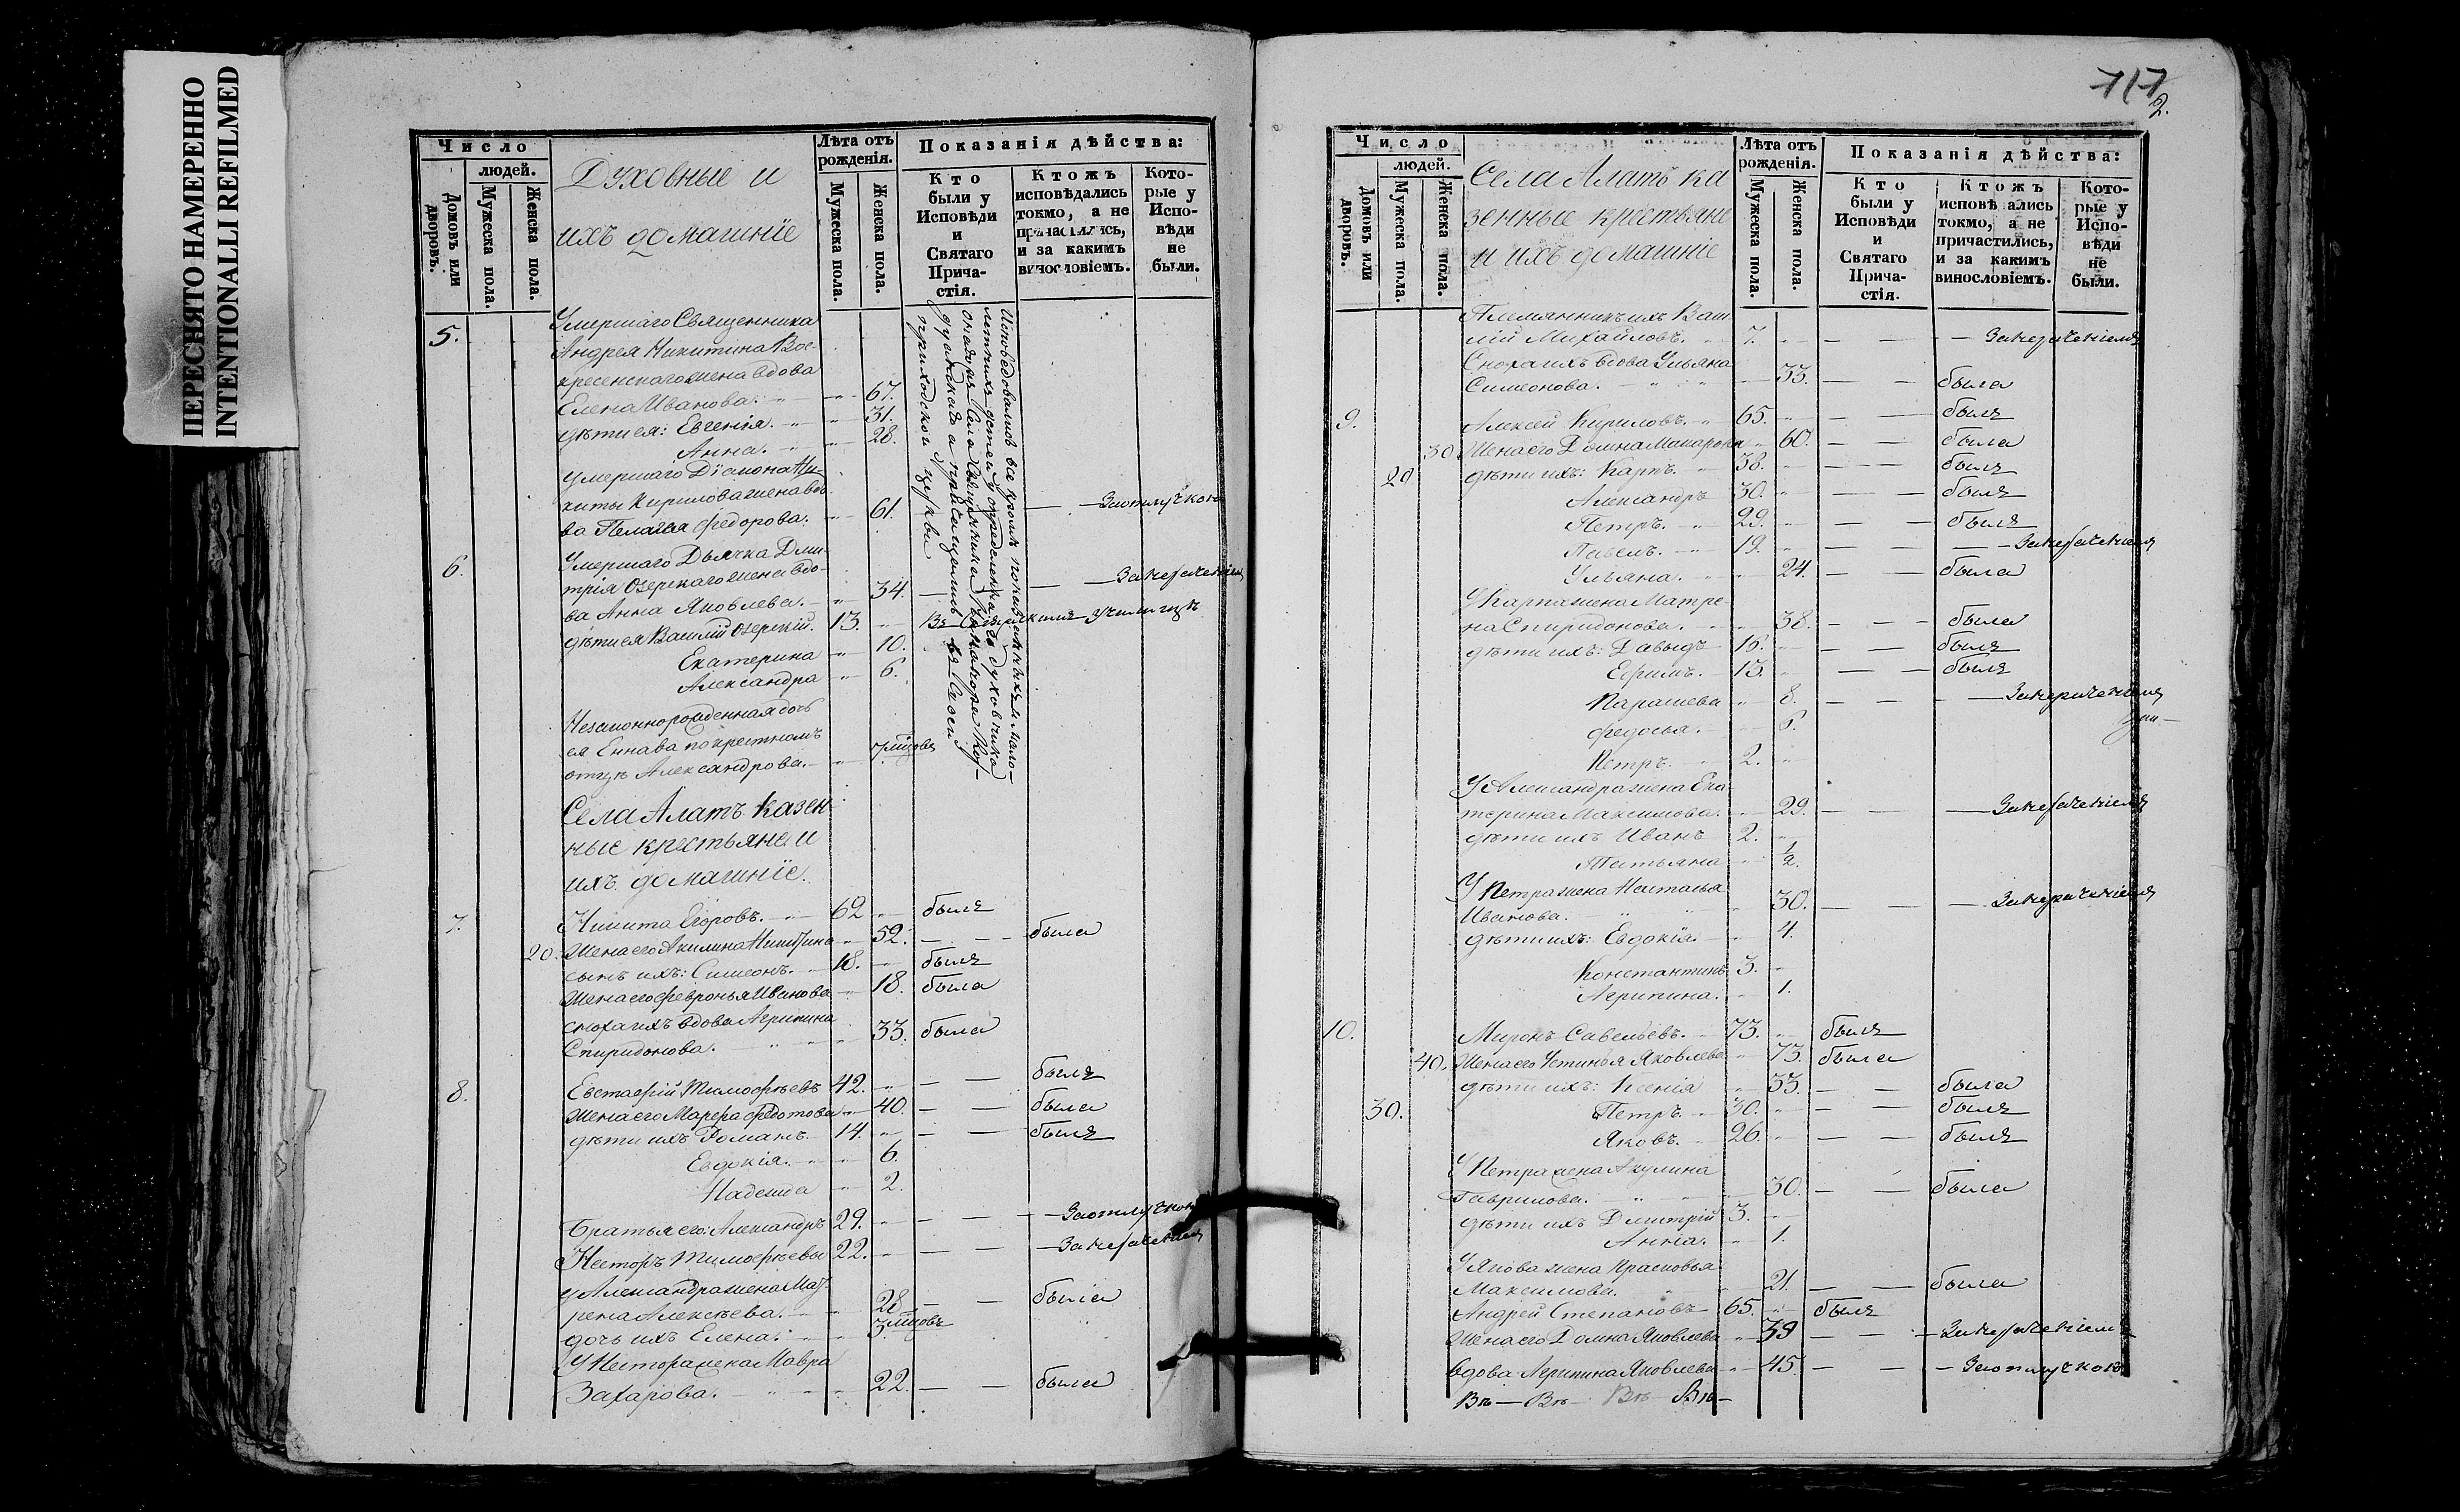 ПЕРЕСНЯТО НАМЕРЕННО
INTENTIONALLI REFILMED
Число
людей.
Домовъ или дворовъ.
Мужеска пола.
Женска пола.
Духовные и
ихъ домашнïе
Лѣта отъ рожденія.
Мужеска пола.
Женска пола.
Показанія дѣйства:
Кто были у Исповѣди и Святаго Прича-стія.
Ктожъ исповѣдались токмо, а не причастились, и за какимъ винословіемъ.
Кото-рые у Испо-вѣди не были.
5. Умершаго Священника
Андрея Никитина Вос-
кресенскаго жена вдова
Елена Иванова. 67.
дѣти ея: Евгенія. 31.
Анна. 28.
Умершаго Дïакона Ни-
киты Кирилова жена вдо-
ва Пелагея Федорова. 61. За отлучкою
6. Умершаго Дьячка Дми-
трія Озерскаго жена вдо-
ва Анна Яковлева. 34. За нераченіемъ
дѣти ея Василій Озерскій. 13. училищѣ
Екатерина 10.
Александра 6.
Незаконнорожденная дочь
ея Еннафа по крестномъ
отцѣ Александрова.
приходской церкви
Села Алатъ казен
ные крестьяне и
ихъ домашнïе.
7. Никита Егоровъ. 62 былъ
20. Жена его Акилина Никитина 52. была
сынъ ихъ: Симеонъ. 18. былъ
Жена его Февронья Иванова 18. была
сноха ихъ вдова Агрипина
Спиридонова. 33. была
8. Евстафій Тимофѣевъ 42. былъ
Жена его Марфа Федотова 40. была
дѣти ихъ Романъ. 14. былъ
Евдокія. 6.
Надежда 2.
Братья его: Александръ 29. За отлучкою
Несторъ Тимофѣевы 22. За нераченіемъ
у Александра жена Мат-
рена Алексѣева. 28 была
дочь ихъ Елена. 3 мѣсцовъ
У Нестора жена Мавра
Захарова. 22. была
717
2.
Число
людей.
Домовъ или дворовъ.
Мужеска пола.
Женска пола.
Села Алатъ ка
зенные крестьяне
и ихъ домашніе
Лѣта отъ рожденія.
Мужеска пола.
Женска пола.
Показанія дѣйства:
Кто были у Исповѣди и Святаго Прича-стія.
Ктожъ исповѣ ались токмо, а не причастились, и за какимъ винословіемъ.
Кото-рые у Испо-вѣди не были.
Племянникъ ихъ Васи
лій Михайловъ. 7. За нераченіемъ
Сноха ихъ вдова Ульяна
Симеонова. 33. была
9. Алексей Кириловъ. 65. былъ
30 Жена его Домна Макарова 60. была
20 дѣти ихъ: Карпъ. 38. былъ
Александръ 30. былъ
Петръ. 23. былъ
Павелъ. 19. За нераченіемъ
Ульяна. 24. была
У Карпа жена Матре-
на Спиридонова. 38. была
дѣти ихъ: Давыдъ 16. былъ
Ефимъ. 13. былъ
Парасцева 8. За нераченіемъ
Федосья.
Петръ. 2.
У Александра жена Ека
терина Максимова. 29. За нераченіемъ
дѣти ихъ Иванъ 2.
Татьяна 1/2.
У Петра жена Наталья
Иванова. 30. За нераченіемъ
дѣти ихъ: Евдокія. 4.
Константинъ 3.
Агрипина. 1.
10. Миронъ Савельевъ. 73. былъ
40. Жена его Устинья Яковлева 73. была
дѣти ихъ: Ксенія 33. была
30. Петръ. 30. былъ
Яковъ. 26. былъ
У Петра жена Акулина
Гаврилова. 30. была
дѣти ихъ Дмитрій 3.
Анна. 1.
У Якова жена Прасковья
Максимова. 21. была
Андрей Степановъ 65. былъ
Жена его Домна Яковлева 39 За нераченіемъ
вдова Агрипина Яковлева 45. За отлучкою